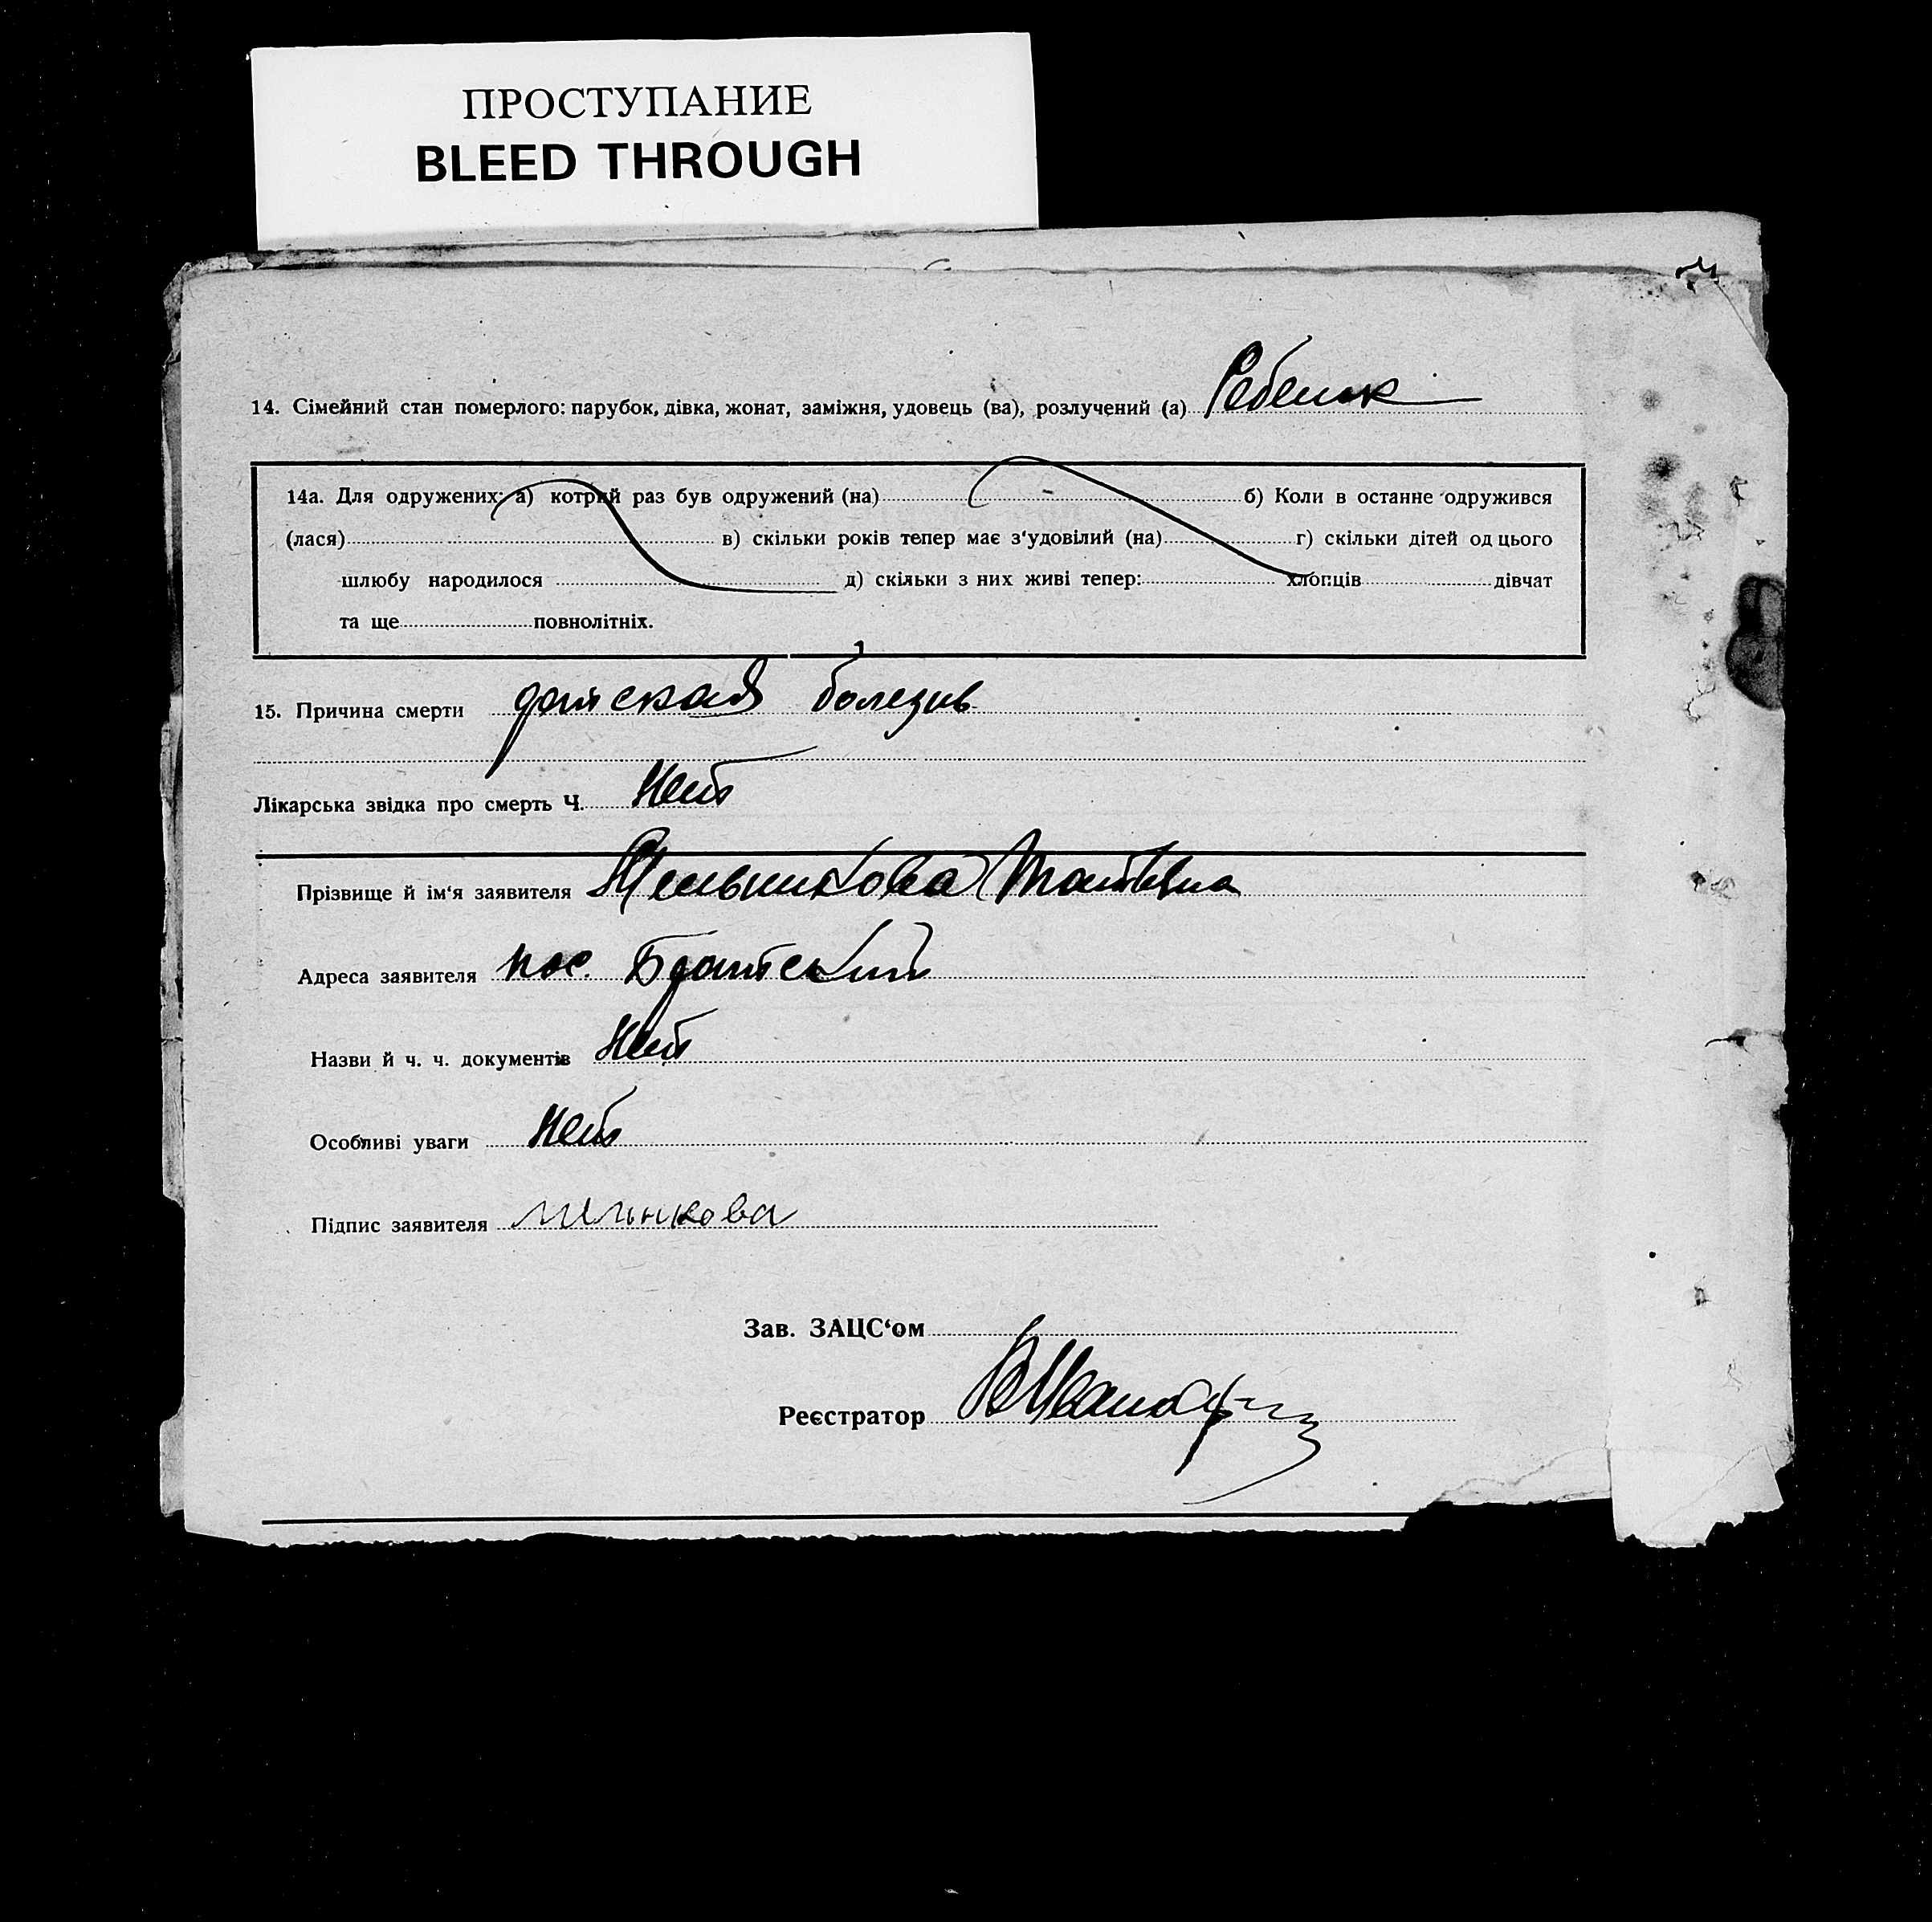 ПРОСТУПАНИЕ
BLEED THROUGH
14. Сімейний стан померлого: парубок, дівка, жонат, заміжня, удовець (ва), розлучений (а) Ребенок
14а. Для одружених: а) котрий раз був одружений (на) б) Коли в останне одружився
(лася) в) скільки років тепер має з'удовілий (на) г) скільки дітей од цього
шлюбу народилося д) скільки з них живі тепер: хлопців дівчат
та ще повнолітніх.
15. Причина смерти детская болезнь
Лікарська звідка про смерть Ч. Нет
Прізвище й ім'я заявителя Мельникова Татьяна
Адреса заявителя пос. Братский
Назви й ч. ч. документів Нет
Особливі уваги Нет
Підпис заявителя
Зав. ЗАЦС'ом
Реєстратор